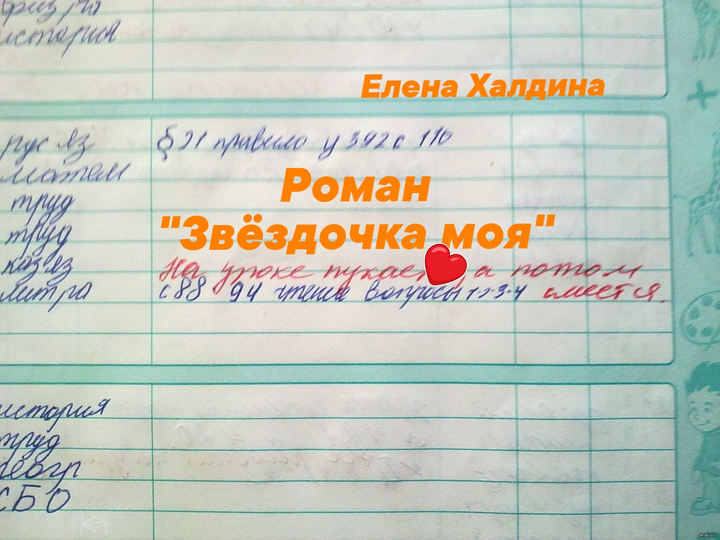 физ ра
история
Елена Халдина
рус яз § 21 правило у 392 с 110
матем
Роман
труд
"Звёздочка моя"
труд
каз яз На уроке пукает, а потом
литра с 88 94 чтение вопросы 1-2-3-4 смеется.
история
труд
геогр
СБО